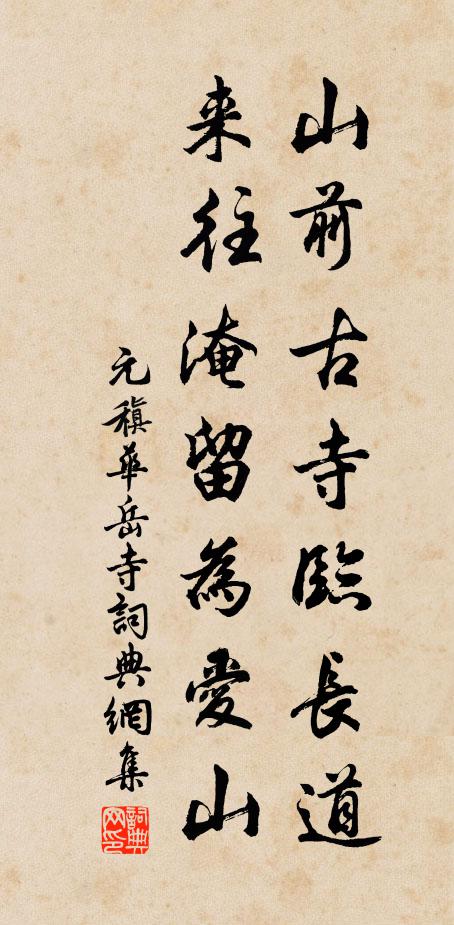 山前古寺臨長道
来往淹留為愛山
元稹華岳寺詞典網集
詞典网印